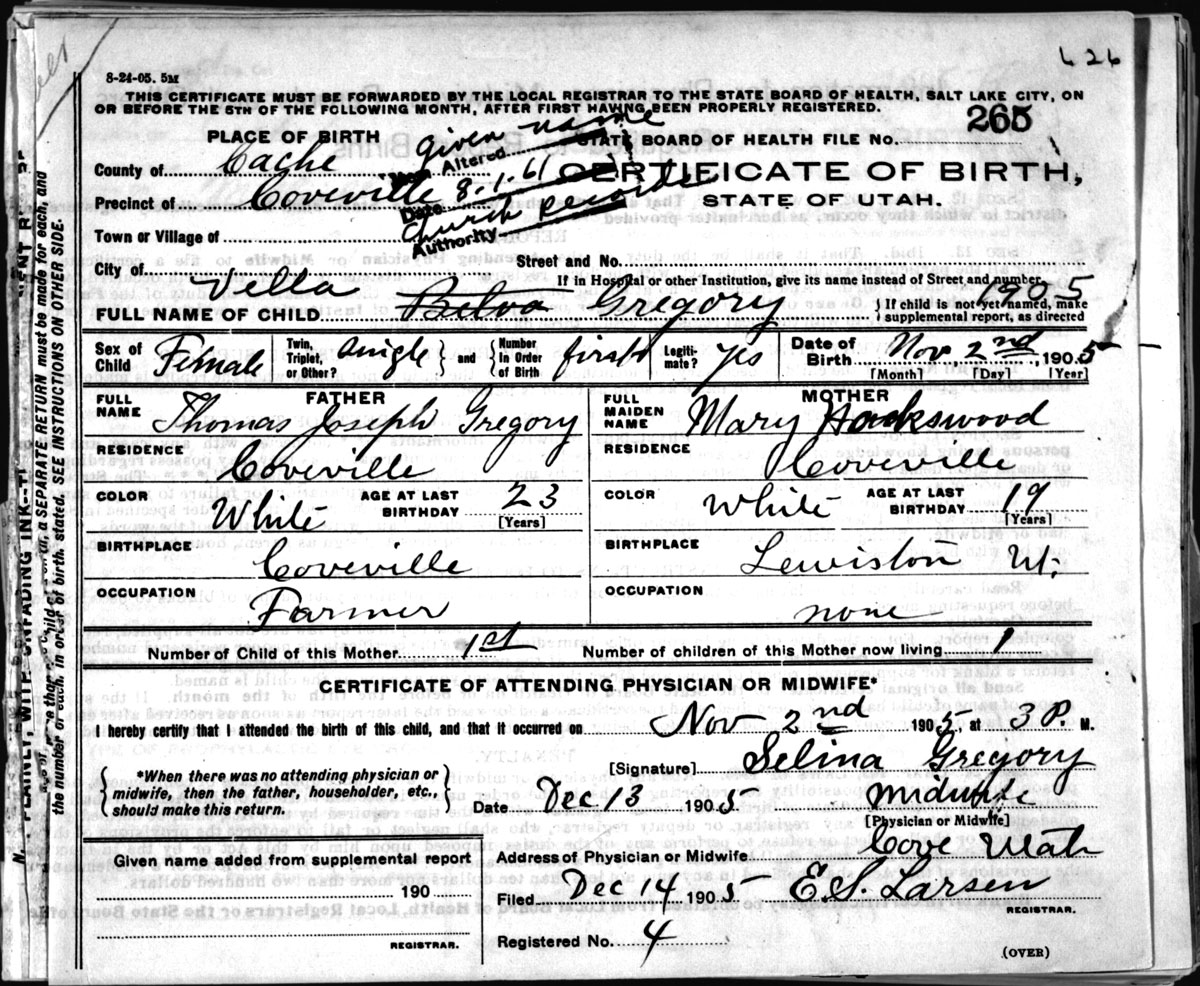 626
8-24-05. 5M
THIS CERTIFICATE MUST BE FORWARDED BY THE LOCAL REGISTRAR TO THE STATE BOARD OF HEALTH, SALT LAKE CITY, ON
OR BEFORE THE 5TH OF THE FOLLOWING MONTH, AFTER FIRST HAVING BEEN PROPERLY REGISTERED.
265
PLACE OF BIRTH
given name
STATE BOARD OF HEALTH FILE NO.
County of Cache
Altered
CERTIFICATE OF BIRTH,
Precinct of Coveville
Date 8-1-61
STATE OF UTAH.
Town or Village of
Church Records
Authority
City of
Street and No.
If in Hospital or other Institution, give its name instead of Street and number.
FULL NAME OF CHILD Vella Belva Gregory
1905
If child is not yet named, make
supplemental report, as directed
Sex of Child Female
Twin, Triplet, or Other? single
and
Number in Order of Birth first
Legiti-mate? yes
Date of Birth Nov 2nd 1905
[Month] [Day] [Year]
FATHER
FULL NAME Thomas Joseph Gregory
RESIDENCE Coveville
COLOR White
AGE AT LAST BIRTHDAY 23
[Years]
BIRTHPLACE Coveville
OCCUPATION Farmer
MOTHER
FULL MAIDEN NAME Mary Hackswood
RESIDENCE Coveville
COLOR White
AGE AT LAST BIRTHDAY 19
[Years]
BIRTHPLACE Lewiston Ut.
OCCUPATION none
Number of Child of this Mother 1st
Number of children of this Mother now living 1
CERTIFICATE OF ATTENDING PHYSICIAN OR MIDWIFE*
I hereby certify that I attended the birth of this child, and that it occurred on Nov 2nd 1905, at 3 P. M.
*When there was no attending physician or
midwife, then the father, householder, etc.,
should make this return.
[Signature] Selina Gregory
Date Dec 13 1905
Midwife
[Physician or Midwife]
Given name added from supplemental report
190
REGISTRAR.
Address of Physician or Midwife Cove Utah
Filed Dec 14 1905 E. S. Larsen
REGISTRAR.
Registered No. 4
(OVER)
PLAINLY, WITH UNFADING INK
a SEPARATE RETURN must be made for each, and
the number of each, in order of birth, stated. SEE INSTRUCTIONS ON OTHER SIDE.